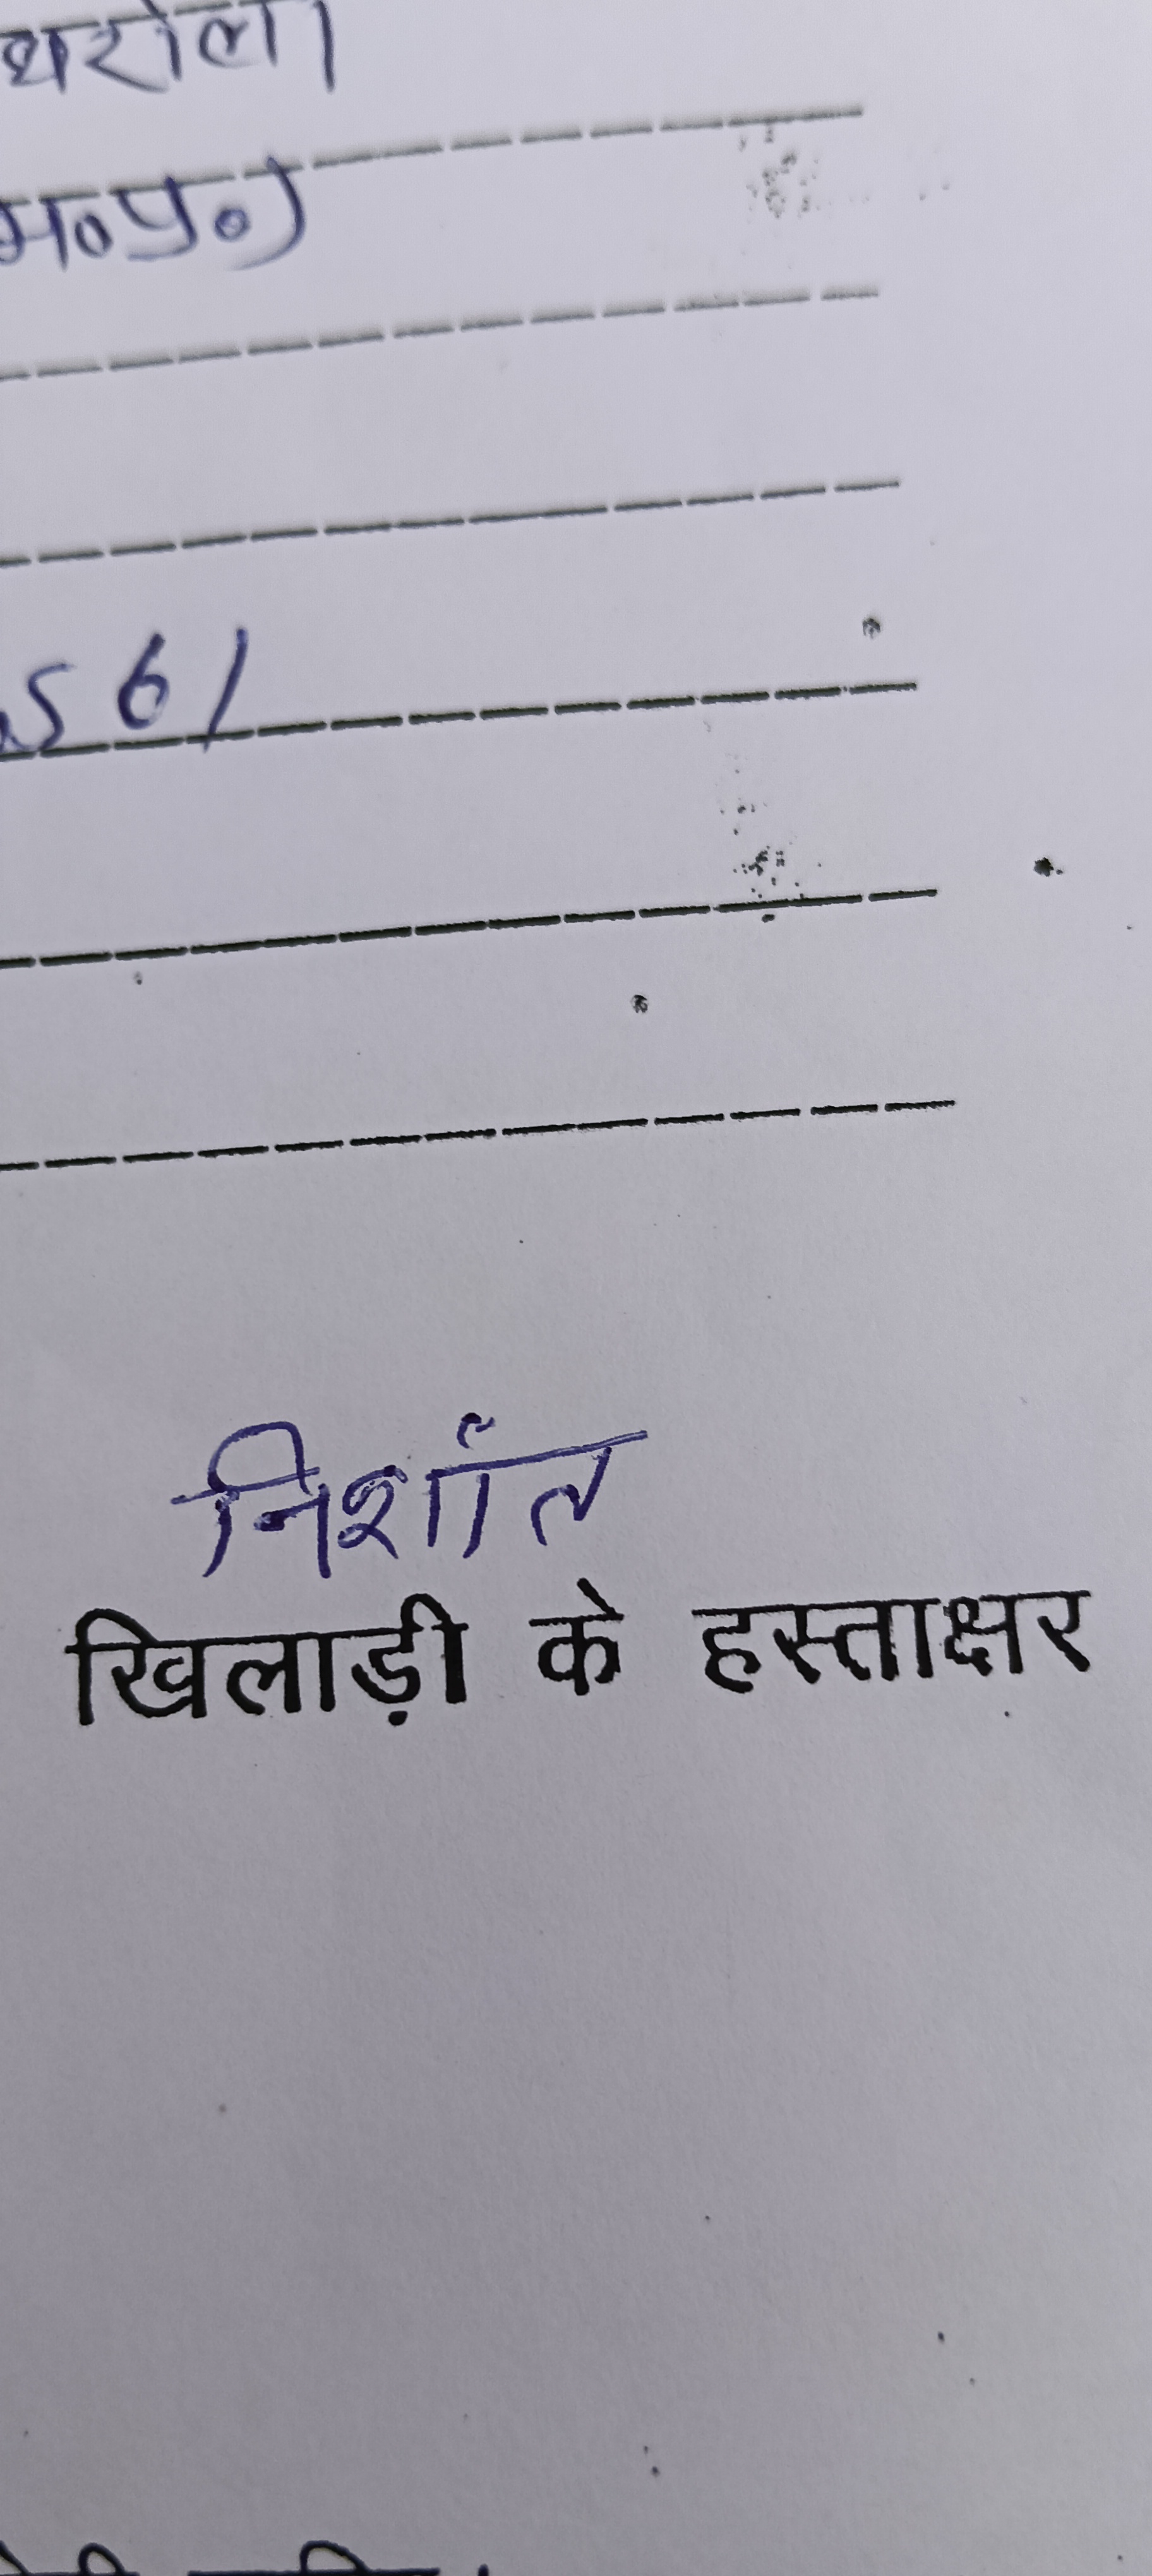 थरोला
म०प्र०)
561
निशांत
खिलाड़ी के हस्ताक्षर